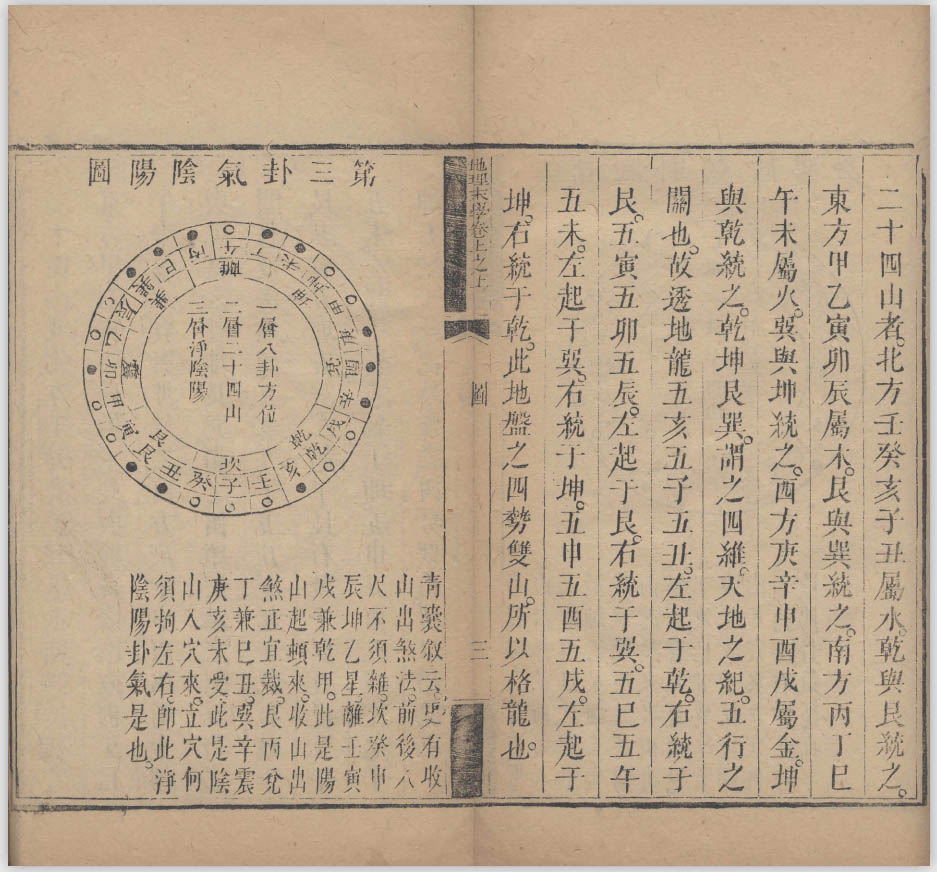 二十四山者。北方壬癸亥子丑屬水。乾與艮統之。
東方甲乙寅卯辰屬木。艮與巽統之。南方丙丁巳
午未屬火。巽與坤統之。西方庚辛申酉戌屬金。坤
與乾統之。乾坤艮巽。謂之四維。天地之紀。五行之
關也。故透地龍五亥五子五丑。左起于乾。右統于
艮。五寅五卯五辰。左起于艮。右統于巽。五巳五午
五未。左起于巽。右統于坤。五申五酉五戌。左起于
坤。右統于乾。此地盤之四勢雙山。所以格龍也。
地理末學卷上之上
圖
三
第三卦氣陰陽圖
一層八卦方位
二層二十四山
三層淨陰陽
離
坤
兌
乾
坎
艮
震
巽
午
丁
未
坤
申
庚
酉
辛
戌
乾
亥
壬
子
癸
丑
艮
寅
甲
卯
乙
辰
巽
巳
丙
青囊叙云。更有收
山出煞法。前後八
尺不須雜。坎癸申
辰坤乙星。離壬寅
戌兼乾甲。此是陽
山起頓來。收山出
煞正宜裁。艮丙兌
丁兼巳丑。巽辛震
庚亥未受。此是陰
山入穴來。立穴何
須拘左右。即此淨
陰陽卦氣是也。